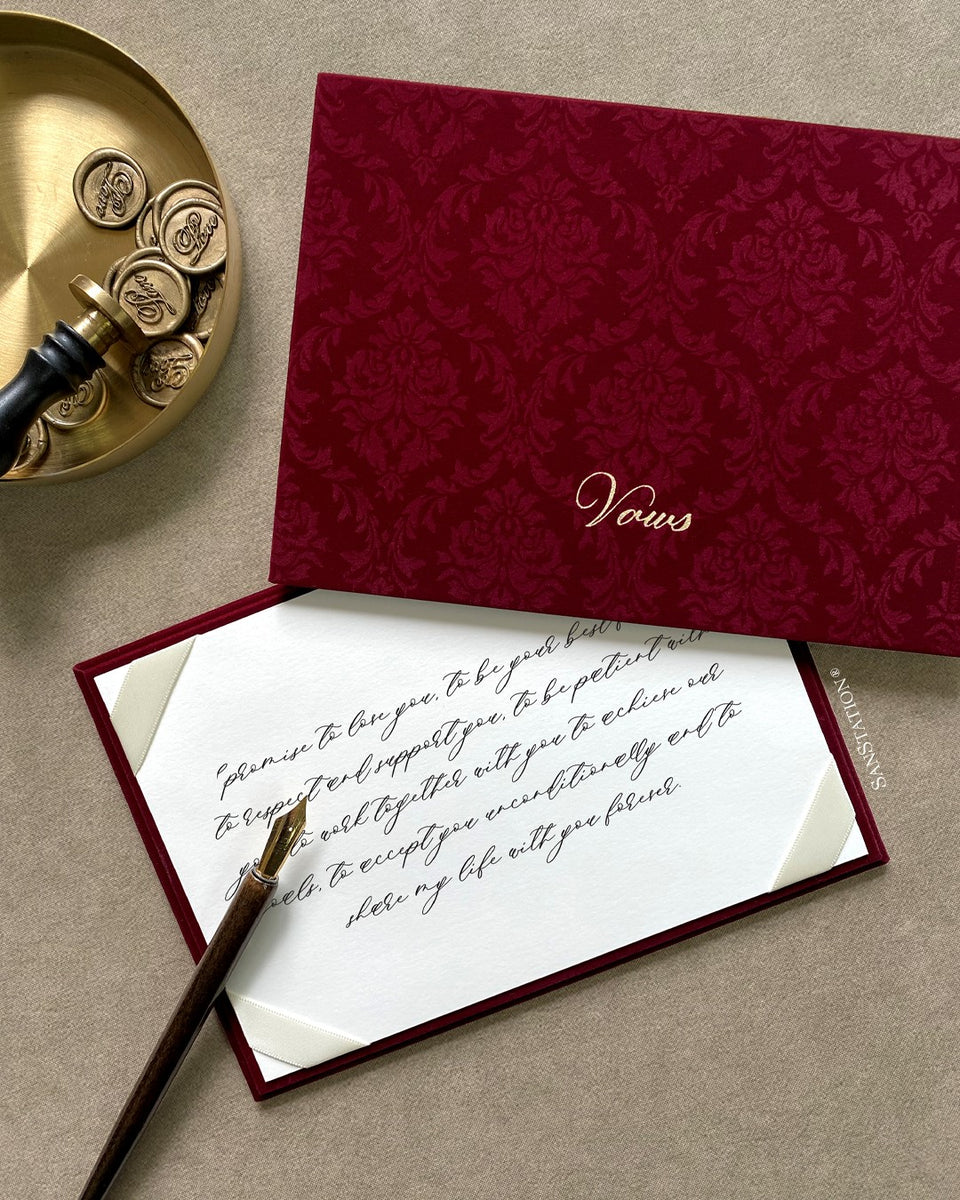 Vows
"promise to love you, to be your best
to respect and support you, to be patient with
to work together with you to achieve our
goals, to accept you unconditionally and to
share my life with you forever.
SANSTATION®